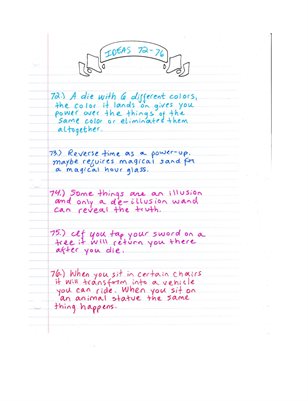 IDEAS 72-76
72.) A die with 6 different colors,
the color it lands on gives you
power over the things of the
same color or eliminated them
altogether.
73.) Reverse time as a power-up.
maybe requires magical sand for
a magical hour glass.
74.) Some things are an illusion
and only a de-illusion wand
can reveal the truth.
75.) If you tap your sword on a
tree it will return you there
after you die.
76.) When you sit in certain chairs
it will transform into a vehicle
you can ride. When you sit on
an animal statue the same
thing happens.